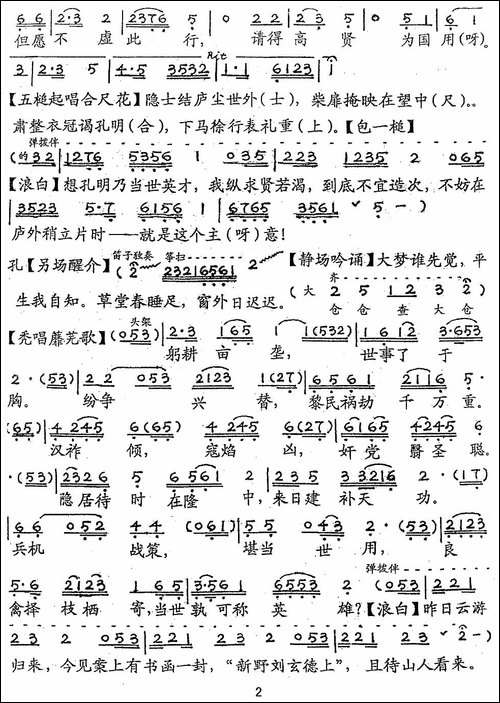 6 6 | 2·3 2 | 2376 5 | 0 2 2 | 2 3 5 | 0 5 1 | 6 1
但愿不虚此行，请得高贤为国用(呀)。
Rit
3 | 2·3 5 | 4·5 3532 | 1·1 6123 | 1
【五槌起唱合尺花】隐士结庐尘世外(士)，柴扉掩映在望中(尺)。
肃整衣冠谒孔明(合)，下马徐行表礼重(上)。【包一槌】
弹拨伴
(的 3 2 | 1276 5356 | 1 0 3 5 | 2 2 3 1235 | 2 0 6 5
【浪白】想孔明乃当世英才，我纵求贤若渴，到底不宜造次，不妨在
3523 5·7 | 6156 1 | 6765 3561 5 - )
庐外稍立片时——就是这个主(呀)意！
笛子独奏 筝扫
孔【另场醒介】(2 23216561 2 【静场吟诵】大梦谁先觉，平
生我自知。草堂春睡足，窗外日迟迟。(大 2 5 1 2 3 2)
仓 仓 查 大 仓
头架
【秃唱藤芜歌】(053) | 2·3 165 | 1 1(532) | 1 6 1 2 3·653
躬耕亩垄，世事了于
2·(53) | 2 2 053 | 2123 1(27) | 6561 2116 5·
胸。纷争兴替，黎民祸劫千万重。
(65) | 4 245 6(65) | 4 245 6(27) | 6165 4245
汉祚倾，寇焰凶，奸党翳圣聪。
·(53) | 2326 5 | 6 561 2 | 2 3 5 3 3216 | 2·(17)
隐居待时在隆中，来日建补天功。
| 6 6 052 | 4 4 (061) | 5 5 043 | 2·(53) | 2123
兵机战策，堪当世用，良
弹拨伴
5·6 2123 | 1 6 5 | 3·561 6553 | 2 (053 | 2 2 1
禽择枝栖寄，当世孰可称英雄？【浪白】昨日云游
2 3 2 053 | 2 2 1 2 3 2 053 | 2 2 1 2 3 | 2 3 2 - )
归来，今见案上有书函一封，“新野刘玄德上”，且待山人看来。
2